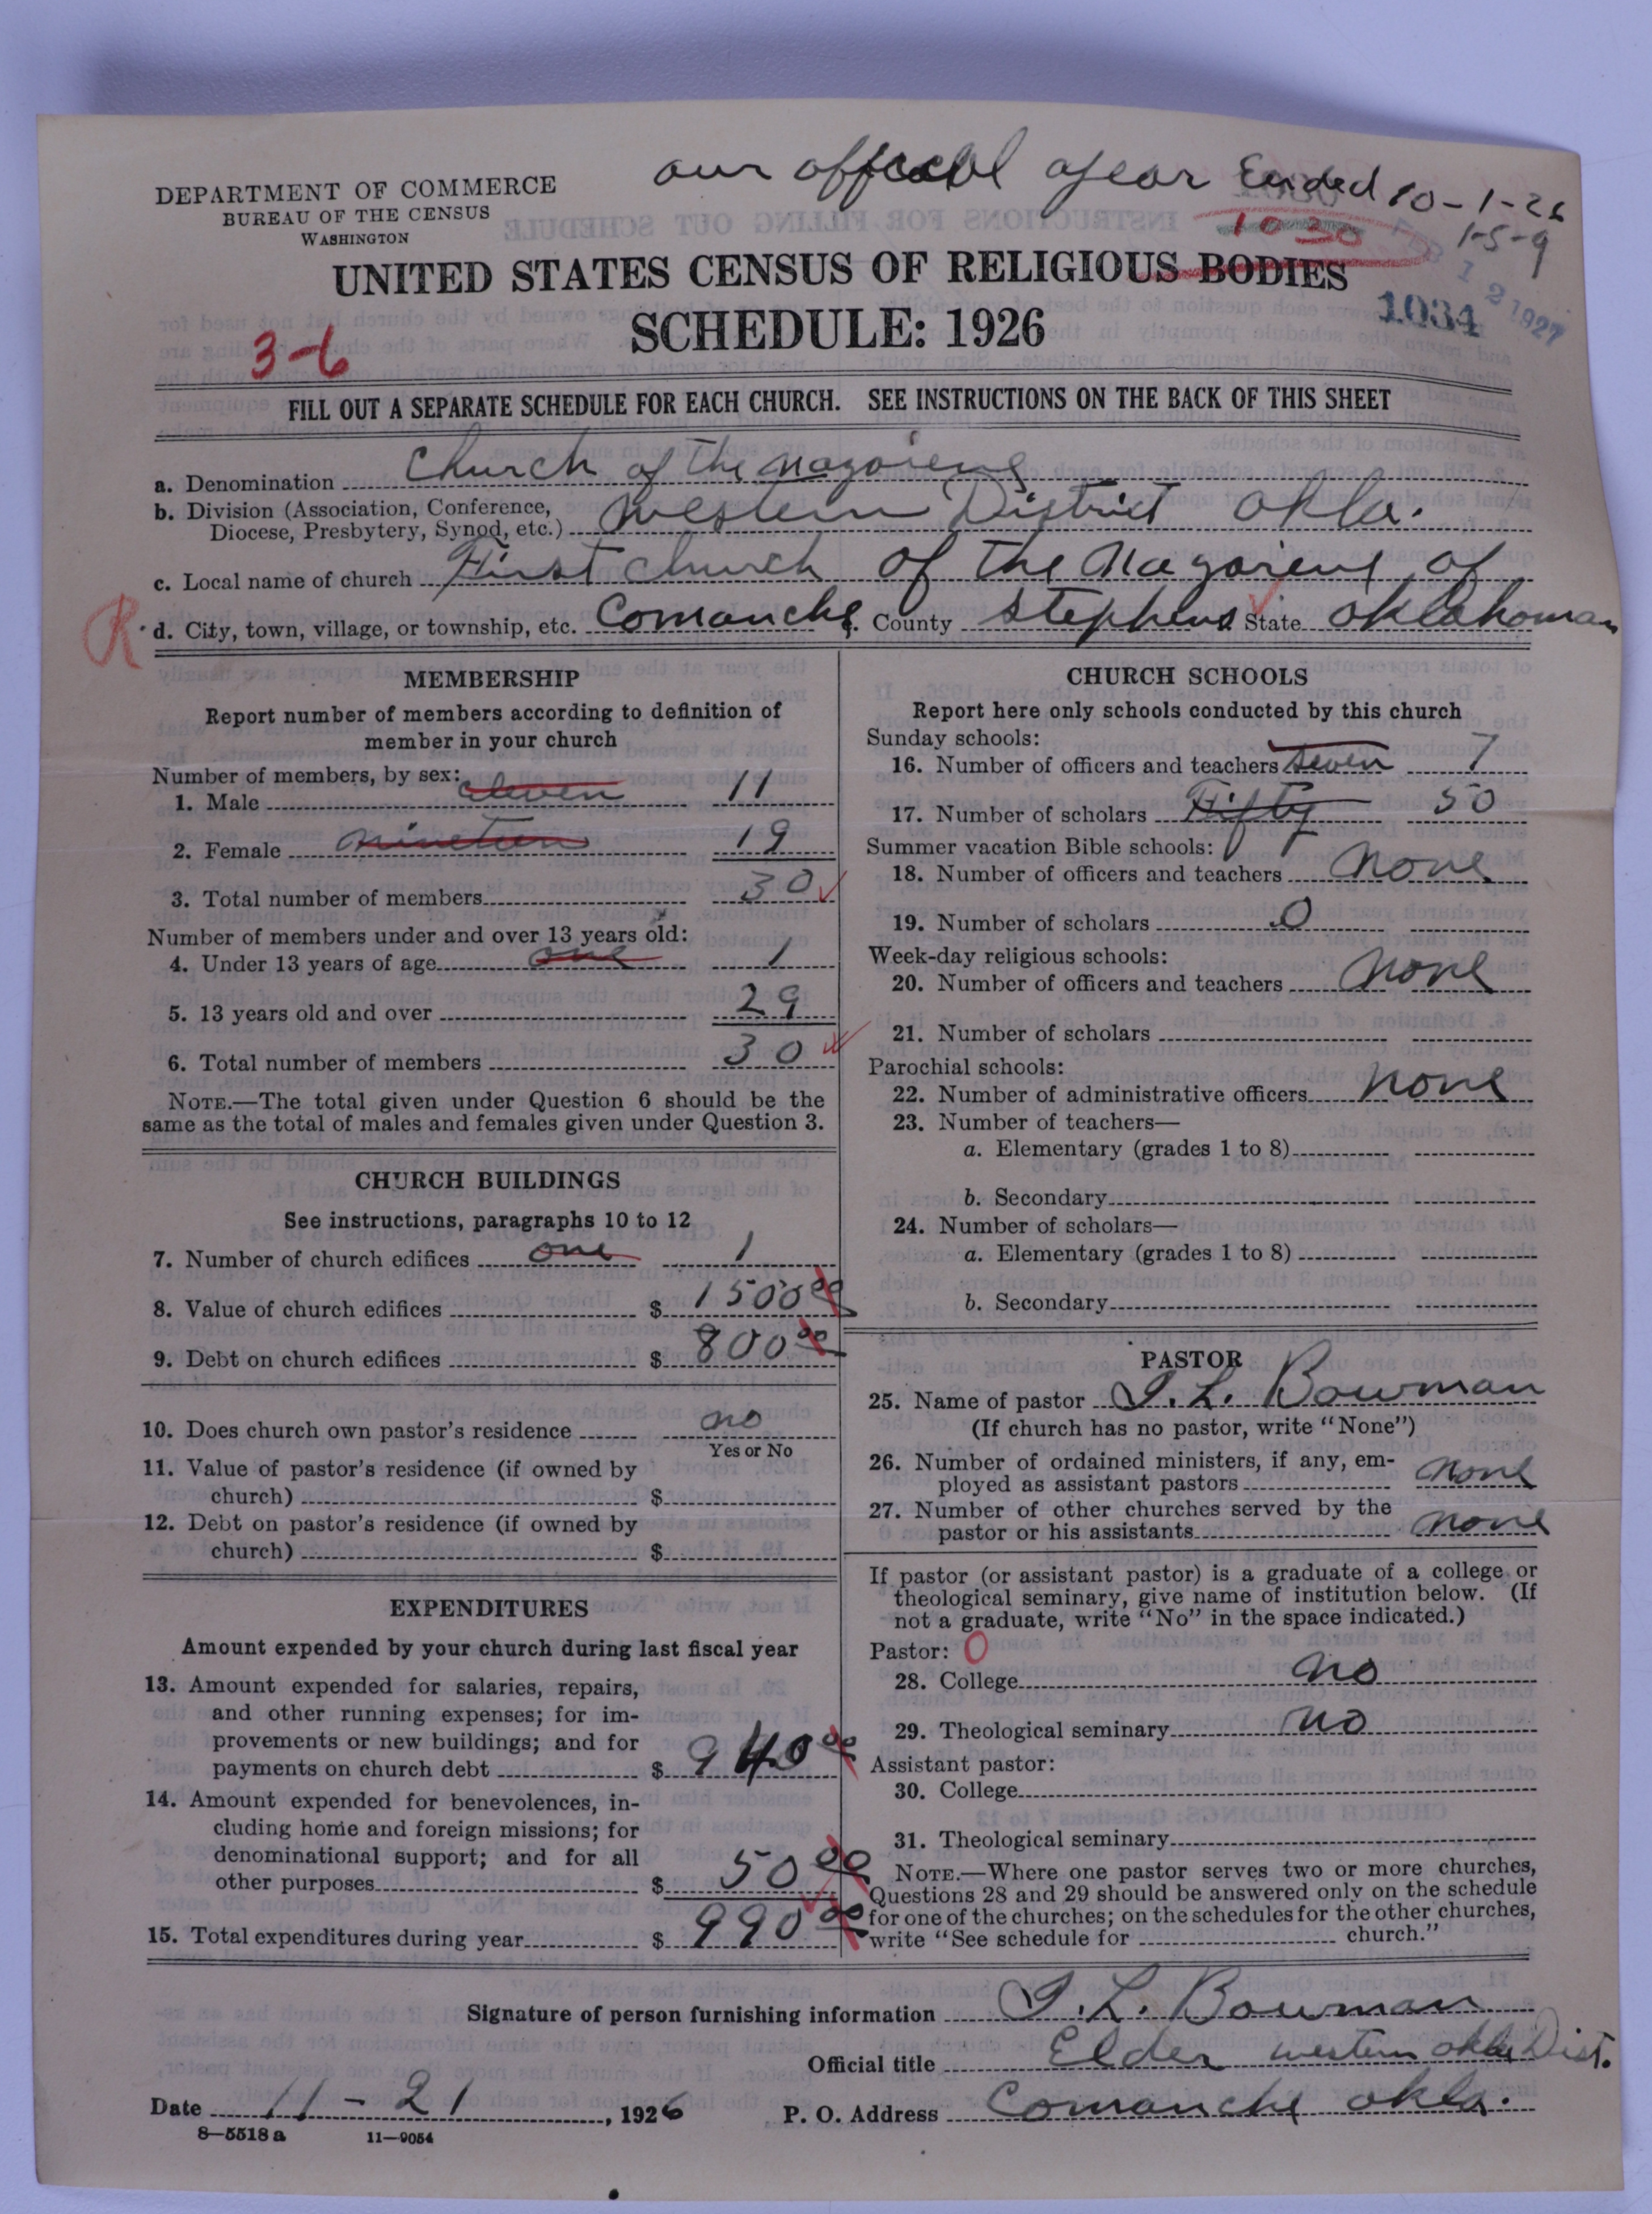 our official year Ended 10-1-26
DEPARTMENT OF COMMERCE
BUREAU OF THE CENSUS
WASHINGTON
1030
1-5-9
UNITED STATES CENSUS OF RELIGIOUS BODIES
FEB 12 1927
1034
SCHEDULE: 1926
3-6
FILL OUT A SEPARATE SCHEDULE FOR EACH CHURCH. SEE INSTRUCTIONS ON THE BACK OF THIS SHEET
a. Denomination Church of the Nazarene
b. Division (Association, Conference,
Diocese, Presbytery, Synod, etc.) Western District Okla.
c. Local name of church First Church of the Nazarene of
R d. City, town, village, or township, etc. Comanche. County Stephens State Oklahoman
MEMBERSHIP
Report number of members according to definition of
member in your church
Number of members, by sex:
1. Male eleven 11
2. Female nineteen 19
3. Total number of members 30
Number of members under and over 13 years old:
4. Under 13 years of age one 1
5. 13 years old and over 29
6. Total number of members 30
NOTE.—The total given under Question 6 should be the
same as the total of males and females given under Question 3.
CHURCH BUILDINGS
See instructions, paragraphs 10 to 12
7. Number of church edifices one 1
8. Value of church edifices $ 1500 00
9. Debt on church edifices $ 800 00
10. Does church own pastor's residence no
Yes or No
11. Value of pastor's residence (if owned by
church) $
12. Debt on pastor's residence (if owned by
church) $
EXPENDITURES
Amount expended by your church during last fiscal year
13. Amount expended for salaries, repairs,
and other running expenses; for im-
provements or new buildings; and for
payments on church debt $ 940 00
14. Amount expended for benevolences, in-
cluding home and foreign missions; for
denominational support; and for all
other purposes $ 50 00
15. Total expenditures during year $ 990 00
CHURCH SCHOOLS
Report here only schools conducted by this church
Sunday schools:
16. Number of officers and teachers seven 7
17. Number of scholars Fifty 50
Summer vacation Bible schools:
18. Number of officers and teachers none
19. Number of scholars 0
Week-day religious schools:
20. Number of officers and teachers none
21. Number of scholars
Parochial schools:
22. Number of administrative officers none
23. Number of teachers—
a. Elementary (grades 1 to 8)
b. Secondary
24. Number of scholars—
a. Elementary (grades 1 to 8)
b. Secondary
PASTOR
25. Name of pastor I. L. Bowman
(If church has no pastor, write "None")
26. Number of ordained ministers, if any, em-
ployed as assistant pastors none
27. Number of other churches served by the
pastor or his assistants none
If pastor (or assistant pastor) is a graduate of a college or
theological seminary, give name of institution below. (If
not a graduate, write "No" in the space indicated.)
Pastor: 0
28. College no
29. Theological seminary no
Assistant pastor:
30. College
31. Theological seminary
NOTE.—Where one pastor serves two or more churches,
Questions 28 and 29 should be answered only on the schedule
for one of the churches; on the schedules for the other churches,
write "See schedule for church."
Signature of person furnishing information I. L. Bowman
Official title Elder western okla Dist.
Date 11-21, 1926 P. O. Address Comanche Okla.
8—5518 a 11—9054